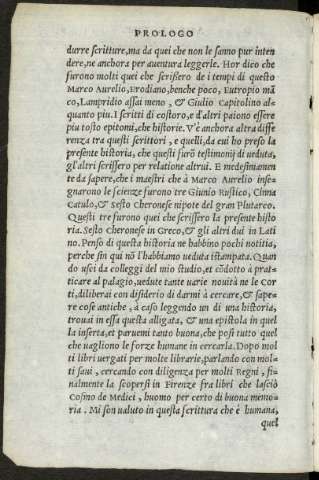 PROLOGO
durre scritture, ma da quei che non le sanno pur inten
dere, ne anchora per auentura leggerle. Hor dico che
furono molti quei che scrißero de i tempi di questo
Marco Aurelio, Erodiano, benche poco, Eutropio mā
co, Lampridio assai meno, & Giulio Capitolino al-
quanto piu. I scritti di costoro, e d'altri paiono essere
piu tosto epitomi, che historie. V'è anchora altra diffe
renza tra questi scrittori, e quelli, da cui ho preso la
presente historia, che questi furō testimonij di ueduta,
gl'altri scrissero per relatione altrui. E medesimamen
te da sapere, che i maestri che à Marco Aurelio inse-
gnarono le scienze furono tre Giunio Rustico, Cinna
Catulo, & Sesto Cheronese nipote del gran Plutarco.
Questi tre furono quei che scrissero la presente histo
ria. Sesto Cheronese in Greco, & gli altri dui in Lati
no. Penso di questa historia ne habbino pochi notitia,
perche fin qui nō l'habbiamo ueduta istampata. Quan
do usci da colleggi del mio studio, et cōdotto à prat-
ticare al palagio, uedute tante uarie nouità ne le Cor
ti, diliberai con disiderio di darmi à cercare, & sape-
re cose antiche, à caso leggendo un di una historia,
trouai in essa questa alligata, & una epistola in quel
la inserta, et paruemi tanto buona, che posi tutto quel
che uagliono le forze humane in cercarla. Dopo mol
ti libri uergati per molte librarie, parlando con mol-
ti saui, cercando con diligenza per molti Regni, fi-
nalmente la scopersi in Firenze fra libri che lasciò
Cosino de Medici, huomo per certo di buona memo-
ria. Mi son ualuto in questa scrittura che è humana,
quel